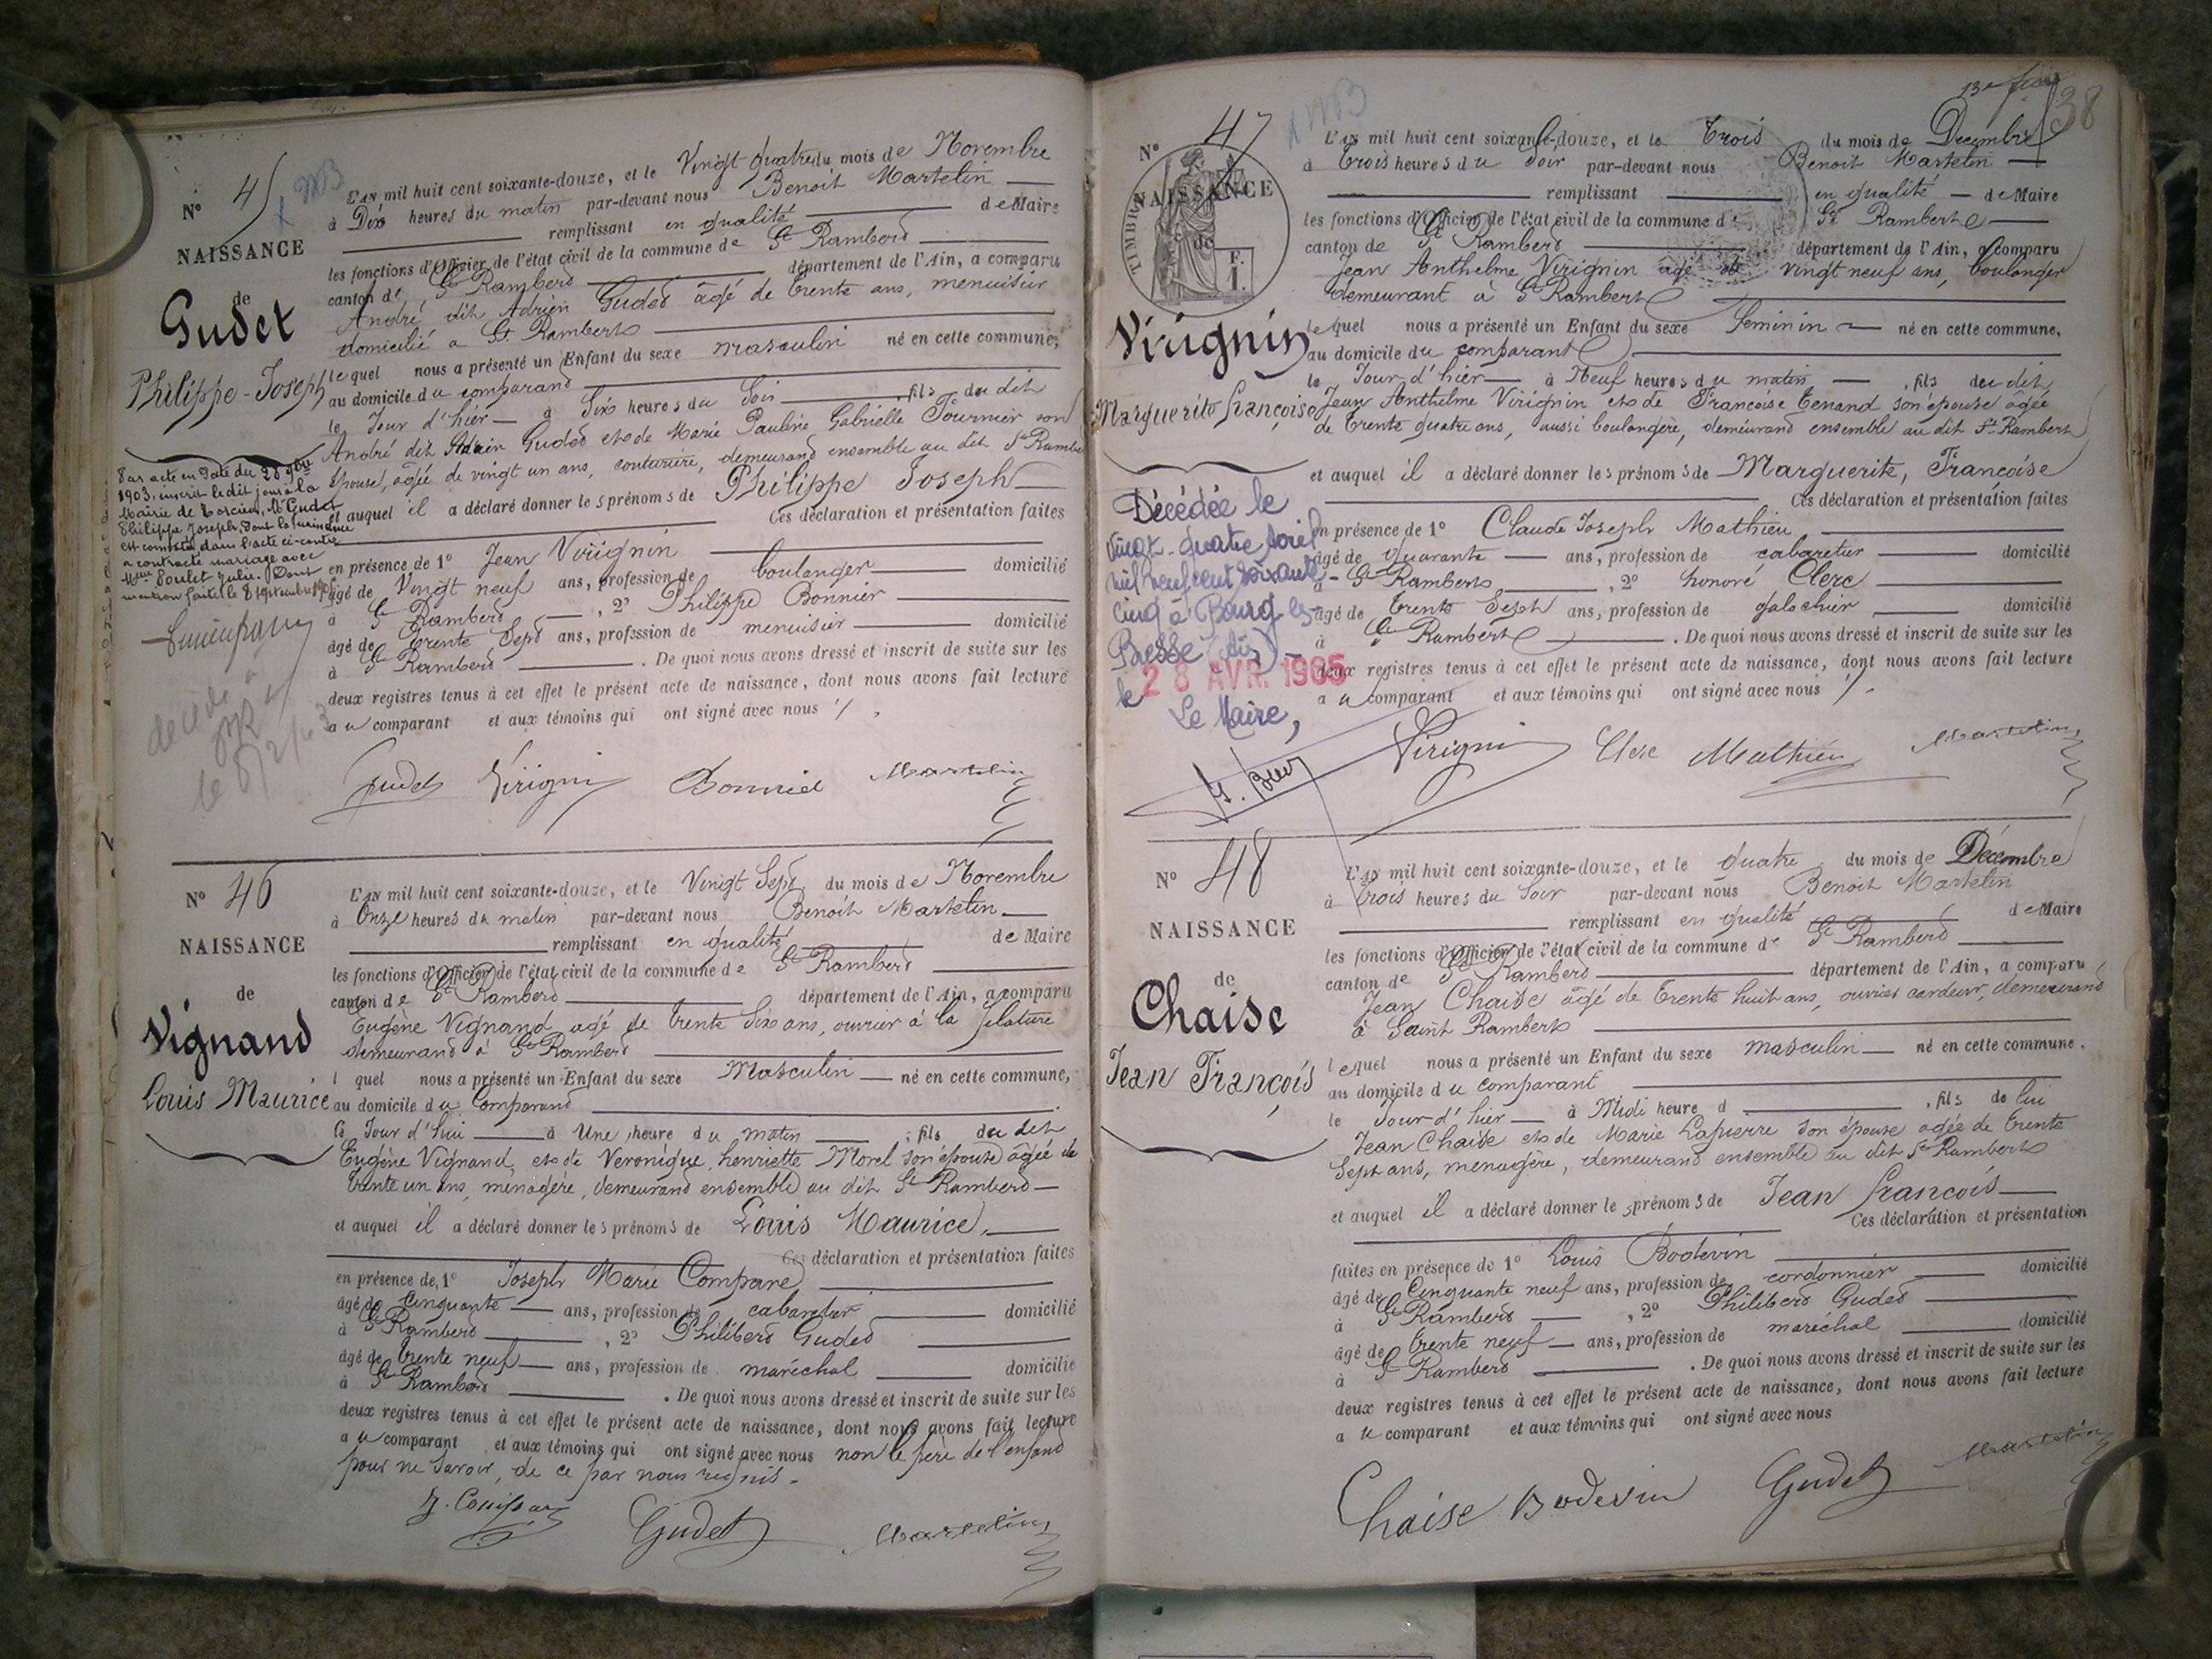 N° 45
NAISSANCE
de
Gudet
Philippe-Joseph
L'an mil huit cent soixante-douze, et le Vingt quatre du mois de Novembre
à Dix heures du matin par-devant nous Benoit Martelin
remplissant en qualité de Maire
les fonctions d'Officier de l'état civil de la commune de St Rambert
canton de St Rambert département de l'Ain, a comparu
André dit Adrien Gudet âgé de trente ans, menuisier
domicilié à St Rambert
lequel nous a présenté un Enfant du sexe masculin né en cette commune,
au domicile du comparant
le Jour d'hier à Six heures du Soir, fils du dit
André dit Adrien Gudet et de Marie Pauline Gabrielle Fournier son
épouse, âgée de vingt un ans, couturière, demeurant ensemble au dit St Rambert
et auquel il a déclaré donner les prénoms de Philippe Joseph
Ces déclaration et présentation faites
en présence de 1° Jean Virignin
âgé de Vingt neuf ans, profession de boulanger domicilié
à St Rambert, 2° Philippe Bonnier
âgé de trente Sept ans, profession de menuisier domicilié
à St Rambert. De quoi nous avons dressé et inscrit de suite sur les
deux registres tenus à cet effet le présent acte de naissance, dont nous avons fait lecture
au comparant et aux témoins qui ont signé avec nous
Par acte en date du 28 9bre
1903, inscrit le dit jour à la
Mairie de Torcieu, Mr Gudet
Philippe Joseph, dont la naissance
est constatée dans l'acte ci-contre
a contracté mariage avec
Melle Julie. Dont
mention faite le 8 septembre
décédé à
le
Gudet Virignin Bonnier Martelin
N° 46
NAISSANCE
de
Vignand
Louis Maurice
L'an mil huit cent soixante-douze, et le Vingt Sept du mois de Novembre
à Onze heures du matin par-devant nous Benoit Martelin
remplissant en qualité de Maire
les fonctions d'Officier de l'état civil de la commune de St Rambert
canton de St Rambert département de l'Ain, a comparu
Eugène Vignand agé de trente Six ans, ouvrier à la filature
demeurant à St Rambert
l quel nous a présenté un Enfant du sexe Masculin né en cette commune,
au domicile du Comparant
le Jour d'hui à Une heure du matin, fils du dit
Eugène Vignand, et de Veronique henriette Morel son épouse âgée de
trente un ans, ménagère, demeurant ensemble au dit St Rambert
et auquel il a déclaré donner les prénoms de Louis Maurice,
Ces déclaration et présentation faites
en présence de, 1° Joseph Marie
âgé de Cinquante ans, profession de cabaretier domicilié
à St Rambert, 2° Philibert Gudet
âgé de trente neuf ans, profession de maréchal domicilié
à St Rambert. De quoi nous avons dressé et inscrit de suite sur les
deux registres tenus à cet effet le présent acte de naissance, dont nous avons fait lecture
au comparant et aux témoins qui ont signé avec nous non le père de l'enfant
pour ne savoir, de ce par nous requis.
Gudet Martelin
38
N° 47
NAISSANCE
de
TIMBRE
F.
1.
Virignin
Marguerite françoise
L'an mil huit cent soixante-douze, et le Trois du mois de Decembre
à trois heures du soir par-devant nous Benoit Martelin
remplissant en qualité de Maire
les fonctions d'Officier de l'état civil de la commune de St Rambert
canton de St Rambert département de l'Ain, a comparu
Jean Anthelme Virignin agé de vingt neuf ans, boulanger
demeurant à St Rambert
lequel nous a présenté un Enfant du sexe feminin né en cette commune,
au domicile du comparant
le Jour d'hier à Neuf heures du matin, fils du dit
Jean Anthelme Virignin et de Françoise Tenand son épouse âgée
de trente quatre ans, aussi boulangère, demeurant ensemble au dit St Rambert
et auquel il a déclaré donner les prénoms de Marguerite, Françoise
Ces déclaration et présentation faites
en présence de 1° Claude Joseph Mathieu
âgé de quarante ans, profession de cabaretier domicilié
à St Rambert, 2° honoré Clerc
âgé de trente Sept ans, profession de galochier domicilié
à St Rambert. De quoi nous avons dressé et inscrit de suite sur les
deux registres tenus à cet effet le présent acte de naissance, dont nous avons fait lecture
au comparant et aux témoins qui ont signé avec nous
Décédée le
vingt-quatre avril
mil neuf cent soixante
cinq à Bourg en
Bresse (Ain)
le 28 AVR. 1965
Le Maire,
Virignin Clerc Mathieu Martelin
N° 48
NAISSANCE
de
Chaise
Jean François
L'an mil huit cent soixante-douze, et le quatre du mois de Décembre
à trois heures du Soir par-devant nous Benoit Martelin
remplissant en qualité de Maire
les fonctions d'Officier de l'état civil de la commune de St Rambert
canton de St Rambert département de l'Ain, a comparu
Jean Chaise âgé de trente huit ans, ouvrier cardeur, demeurant
à Saint Rambert
lequel nous a présenté un Enfant du sexe masculin né en cette commune,
au domicile du comparant
le Jour d'hier à Midi heure d, fils de lui
Jean Chaise et de Marie Lapierre son épouse agée de trente
Sept ans, menagère, demeurant ensemble au dit St Rambert
et auquel il a déclaré donner les prénoms de Jean françois
Ces déclaration et présentation
faites en présence de 1° Louis Bodevin
âgé de Cinquante neuf ans, profession de cordonnier domicilié
à St Rambert, 2° Philibert Gudet
âgé de trente neuf ans, profession de maréchal domicilié
à St Rambert. De quoi nous avons dressé et inscrit de suite sur les
deux registres tenus à cet effet le présent acte de naissance, dont nous avons fait lecture
au comparant et aux témoins qui ont signé avec nous
Chaise Bodevin Gudet Martelin